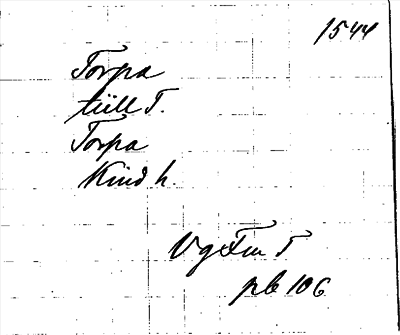 1544
Torpa
tüll T.
Torpa
Kind h.
Vg Fm T
pb 106